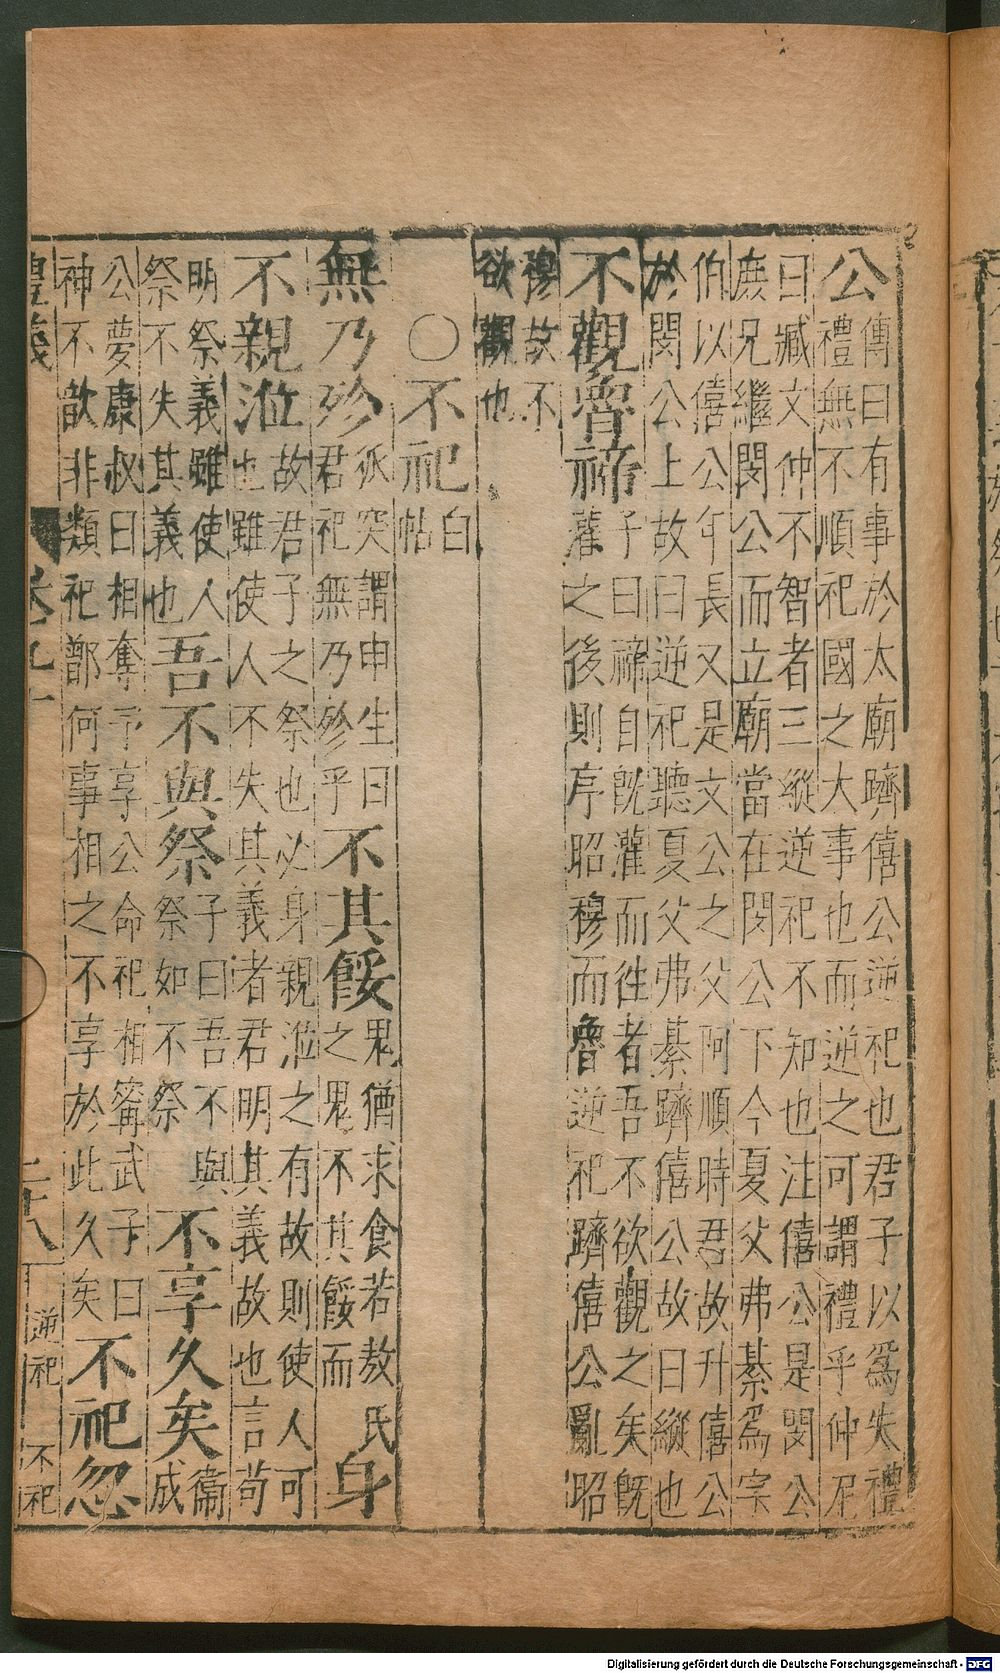 公
傳曰有事於太廟躋僖公逆祀也君子以爲失禮
禮無不順祀國之大事也而逆之可謂禮乎仲尼
曰臧文仲不智者三縱逆祀不知也注僖公是閔公
庶兄繼閔公而立廟當在閔公下今夏父弗綦爲宗
伯以僖公年長又是文公之父阿順時君故升僖公
於閔公上故曰逆祀聽夏父弗綦躋僖公故曰縱也
不觀魯禘
子曰禘自旣灌而徃者吾不欲觀之矣旣
灌之後則序昭穆而魯逆祀躋僖公亂昭
穆故不
欲觀也
○不祀
白
帖
無乃殄
狐突謂申生曰
君祀無乃殄乎
不其餒
鬼猶求食若敖氏
之鬼不其餒而
身
不親涖
故君子之祭也必身親涖之有故則使人可
也雖使人不失其義者君明其義故也言苟
明祭義雖使人
祭不失其義也
吾不與祭
子曰吾不與
祭祭如不祭
不享久矣
衞
成
公夢康叔曰相奪予享公命祀相甯武子曰
神不歆非類祀鄫何事相之不享於此久矣
不祀忽
禮義
卷九十
二十八
逆祀
不祀
Digitalisierung gefördert durch die Deutsche Forschungsgemeinschaft - DFG